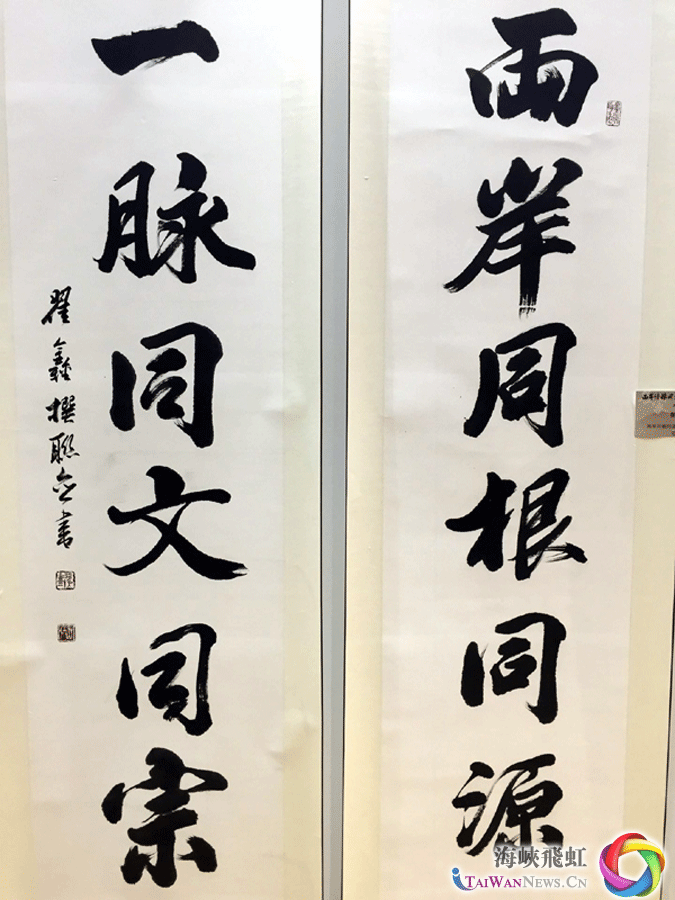 兩岸同根同源
一脉同文同宗
翟鑫撰聯並書
海峽飛虹
TAIWANNEWS.CN